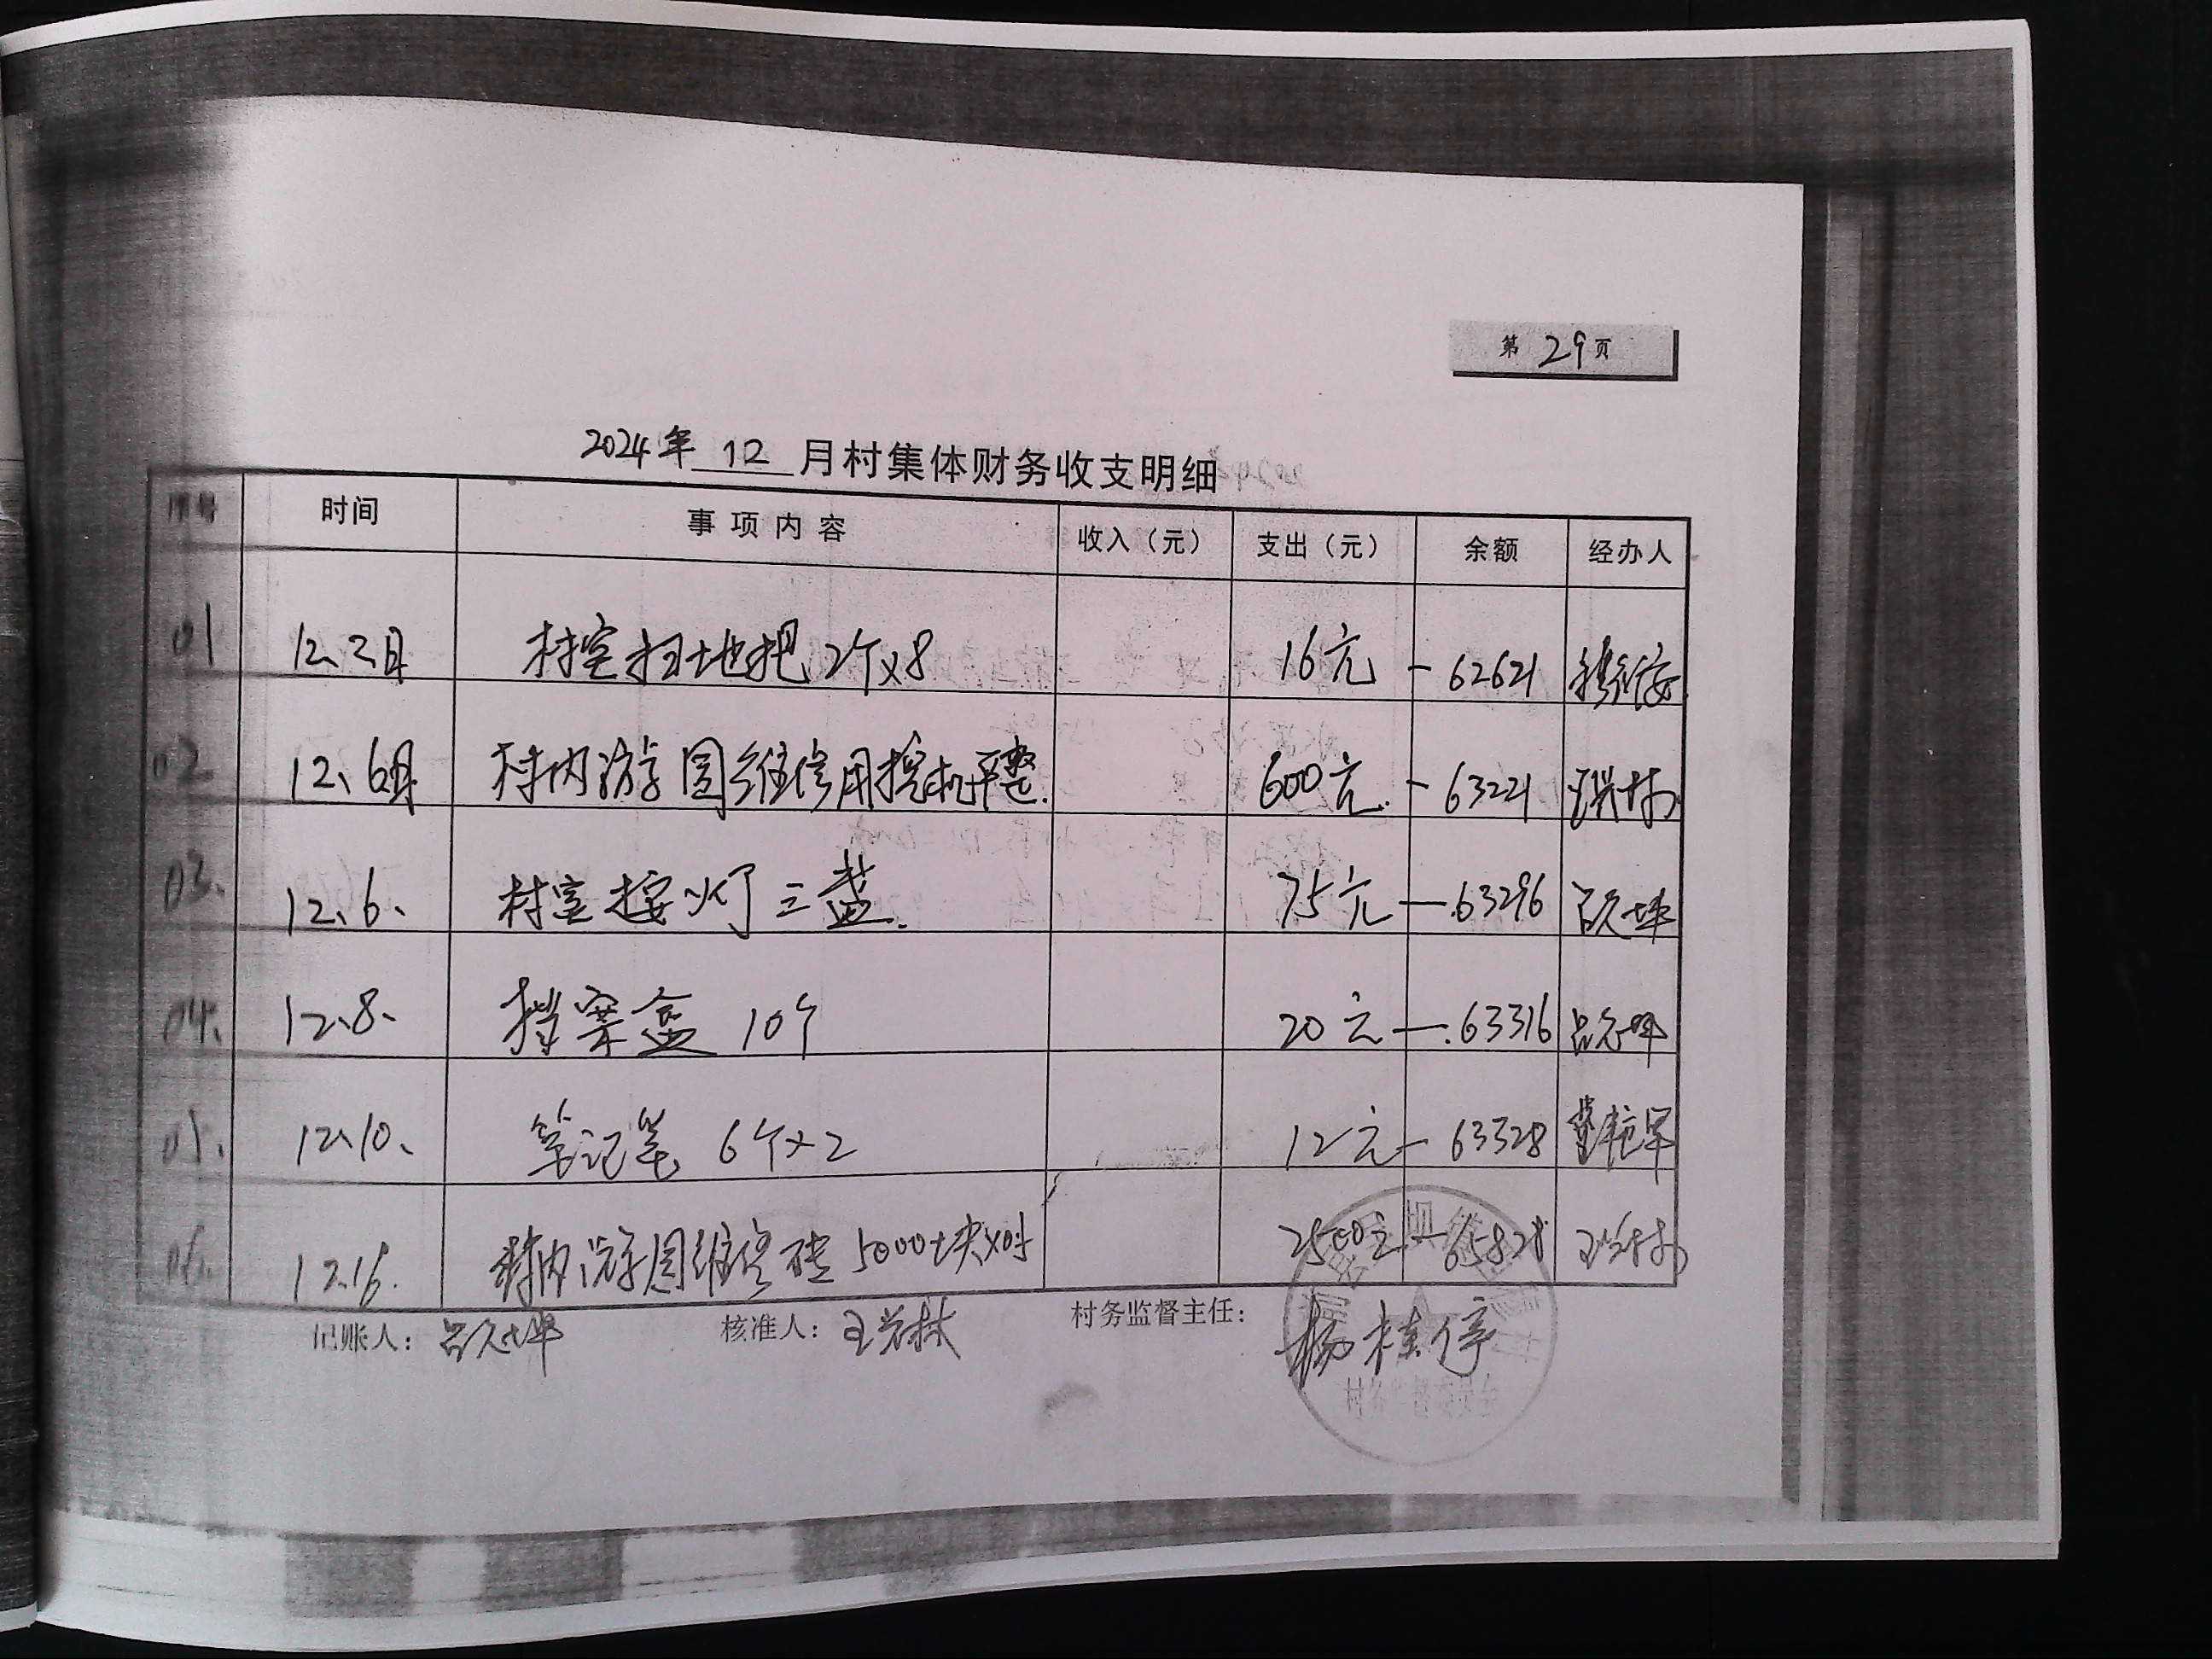 第 29 页
2024年 12 月村集体财务收支明细
序号 时间 事项内容 收入（元） 支出（元） 余额 经办人
01 12、3日 村室扫地把 2个×8 16元 -62621
02 12、6日 村内游园维修用挖机平整. 600元. -63221 王兴林
03. 12、6、 村室按灯三盏. 75元 -63296 吕久坤
04. 12、8、 档案盒 10个 20元 -63316 吕久坤
05. 12、10、 笔记笔 6个×2 12元 -63328
06. 12.16. 村内游园维修砖 5000块×0.5 2500元 -65828 王兴林
记账人： 吕久坤 核准人： 王兴林 村务监督主任： 杨桂停
村务监督委员会